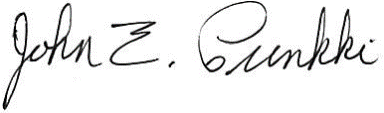 John E. Punkki